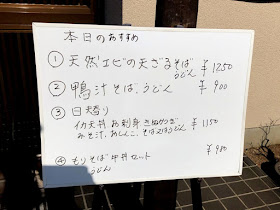 本日のおすすめ
① 天然エビの天ざるそば ¥1250
うどん
② 鴨汁そば、うどん ¥900
③ 日替り
イカ天丼 お刺身 きぬかつぎ ¥1150
みそ汁、おしんこ、そば又はうどん
④ もりそば 牛丼セット ¥980
うどん